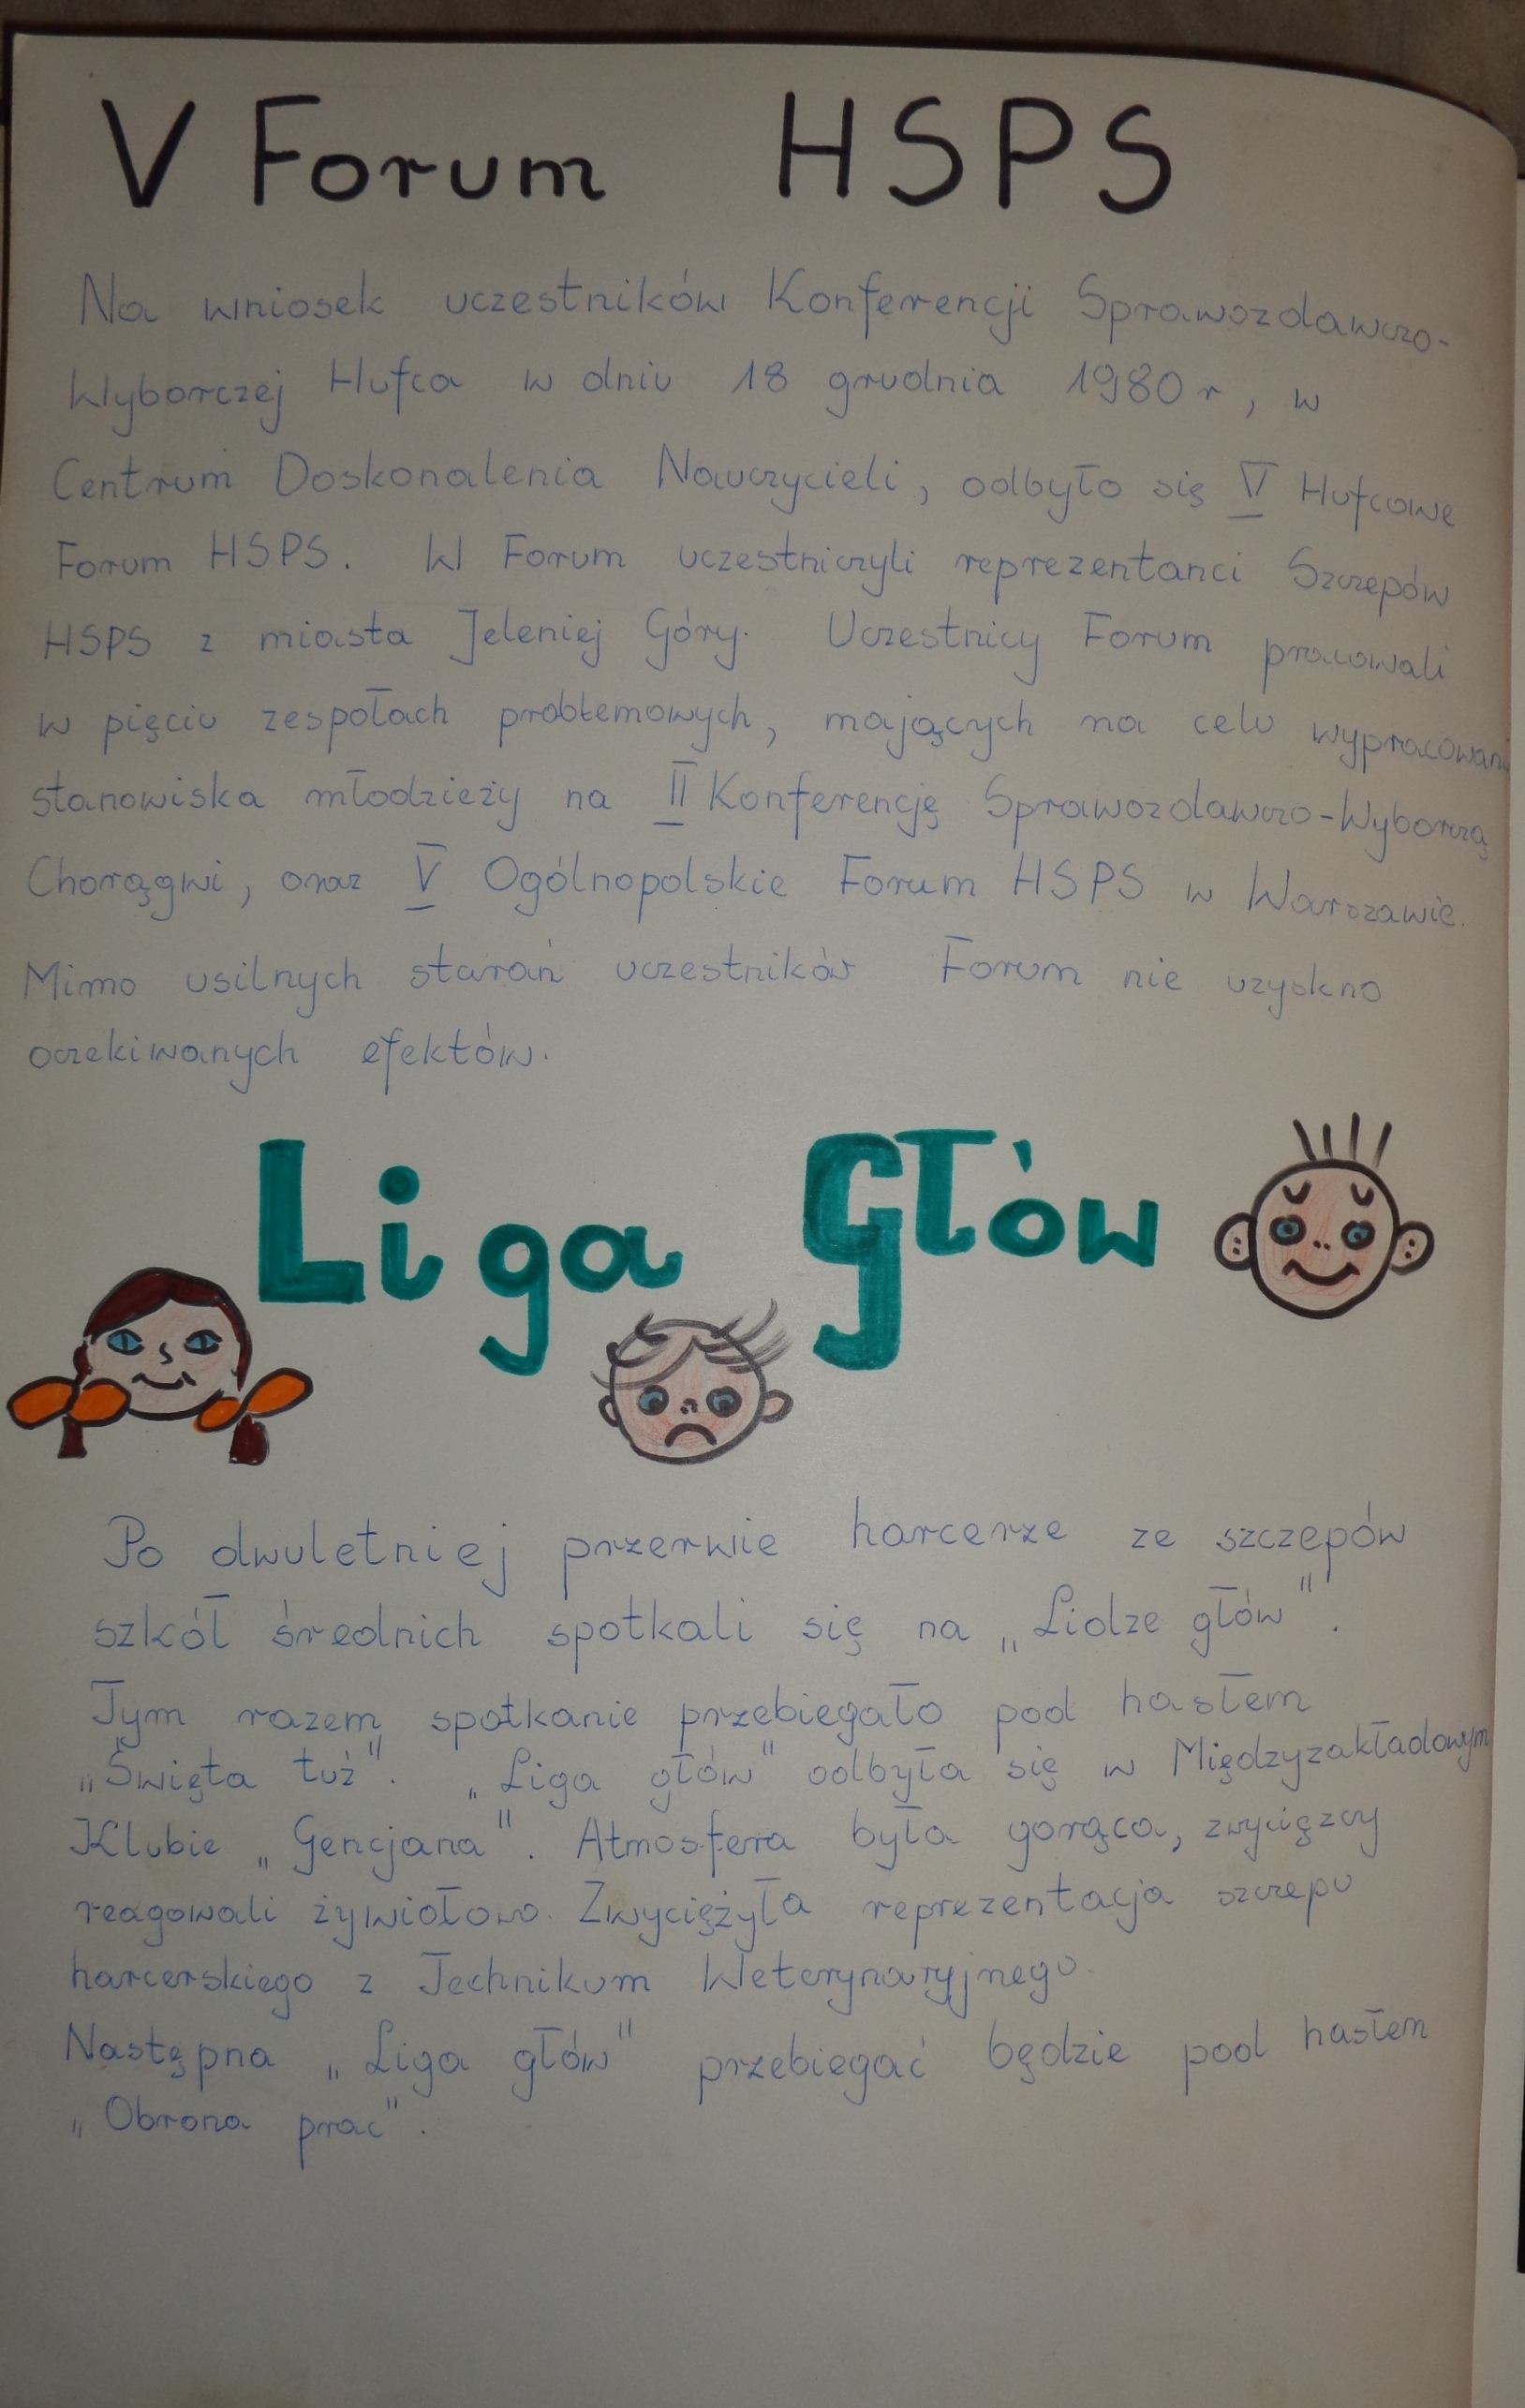 V Forum HSPS
Na wniosek uczestników Konferencji Sprawozdawczo-
Wyborczej Hufca w dniu 18 grudnia 1980 r, w
Centrum Doskonalenia Nauczycieli, odbyło się V Hufcowe
Forum HSPS. W Forum uczestniczyli reprezentanci Szczepów
HSPS z miasta Jeleniej Góry. Uczestnicy Forum pracowali
w pięciu zespołach problemowych, mających na celu wypracowani
stanowiska młodzieży na II Konferencję Sprawozdawczo-Wyborczą
Chorągwi, oraz V Ogólnopolskie Forum HSPS w Warszawie.
Mimo usilnych starań uczestników Forum nie uzyskno
oczekiwanych efektów.
Liga Głów
Po dwuletniej przerwie harcerze ze szczepów
szkół średnich spotkali się na „Lidze głów".
Tym razem spotkanie przebiegało pod hasłem
„Święta tuż". „Liga głów" odbyła się w Międzyzakładowym
Klubie „Gencjana". Atmosfera była gorąca, zwycięzcy
reagowali żywiołowo. Zwyciężyła reprezentacja szczepu
harcerskiego z Technikum Weterynaryjnego.
Następna „Liga głów" przebiegać będzie pod hasłem
„Obrona prac".